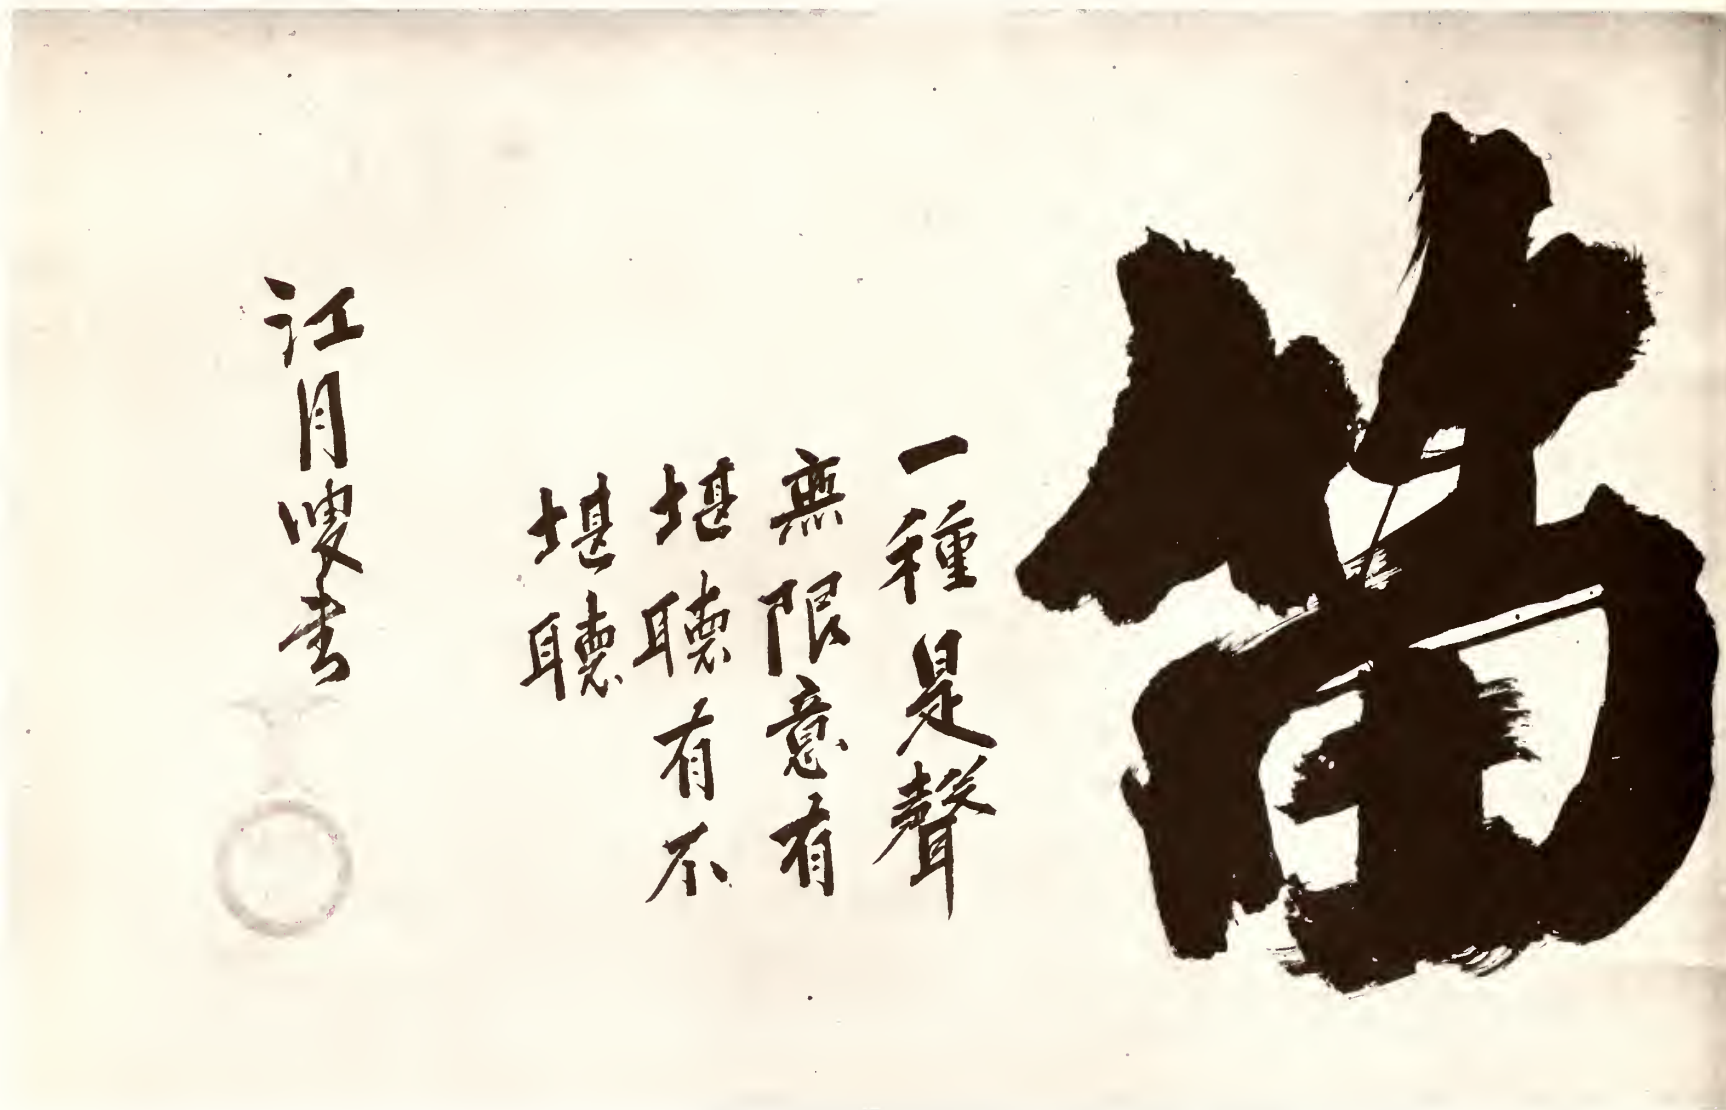 笛
一種是聲
無限意有
堪聽有不
堪聽
江月叟書